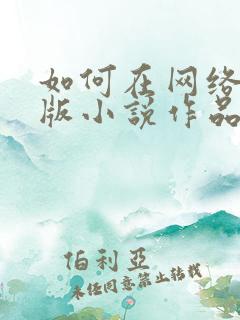 如何在网络
版小说作品
伯利亚
未经同意禁止转载